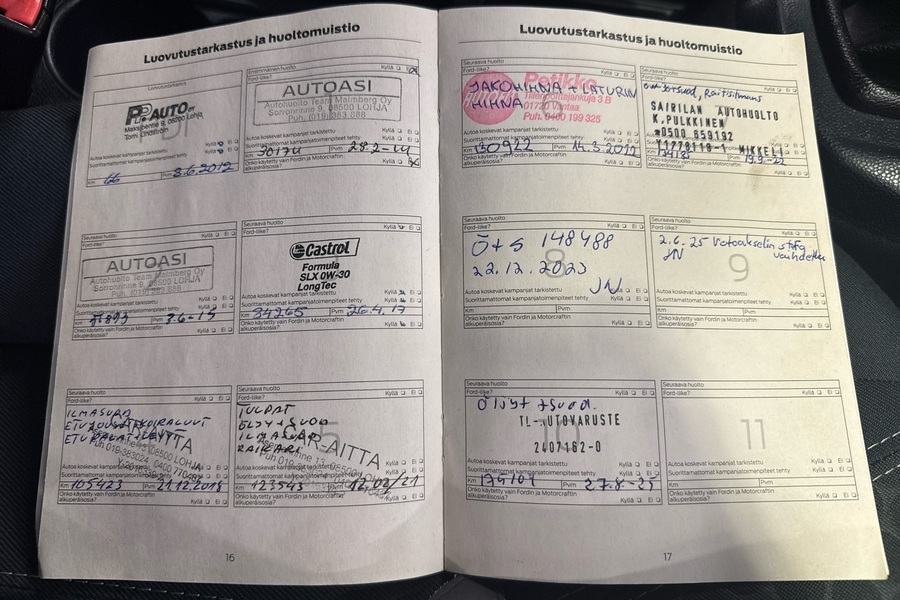 Luovutustarkastus ja huoltomuistio
Luovutustarkastus
PP-AUTO OY
Maksjoentie 8, 08500 Lohja
Autoa koskevat kampanjat tarkistettu Kyllä Ei
Suorittamattomat kampanjatoimenpiteet tehty
Kyllä Ei
Km 66 Pvm 8.6.2012
Ensimmäinen huolto
Ford-liike? Kyllä Ei
AUTOASI
Autohuolto Team Malmberg Oy
Sorronrinne 9, 08500 LOHJA
Puh. (019) 383 088
Autoa koskevat kampanjat tarkistettu Kyllä Ei
Suorittamattomat kampanjatoimenpiteet tehty
Kyllä Ei
Km 30174 Pvm 28.2-14
Onko käytetty vain Fordin ja Motorcraftin
alkuperäisosia? Kyllä Ei
Seuraava huolto
Ford-liike? Kyllä Ei
AUTOASI
Autohuolto Team Malmberg Oy
Sorronrinne 9, 08500 LOHJA
Puh. (019) 383 088
Autoa koskevat kampanjat tarkistettu Kyllä Ei
Suorittamattomat kampanjatoimenpiteet tehty
Kyllä Ei
Km Pvm
Onko käytetty vain Fordin ja Motorcraftin
alkuperäisosia? Kyllä Ei
Seuraava huolto
Ford-liike? Kyllä Ei
Castrol
Formula
SLX 0W-30
LongTec
Autoa koskevat kampanjat tarkistettu Kyllä Ei
Suorittamattomat kampanjatoimenpiteet tehty
Kyllä Ei
Km 84265 Pvm 26.4.17
Onko käytetty vain Fordin ja Motorcraftin
alkuperäisosia? Kyllä Ei
Seuraava huolto
Ford-liike? Kyllä Ei
ILMASUOD
Autoa koskevat kampanjat tarkistettu Kyllä Ei
Suorittamattomat kampanjatoimenpiteet tehty
Kyllä Ei
Km 105423 Pvm 21.12.2018
Onko käytetty vain Fordin ja Motorcraftin
alkuperäisosia? Kyllä Ei
Seuraava huolto
Ford-liike? Kyllä Ei
TULPAT
ÖLJY + SUOD
ILMASUOD
Autoa koskevat kampanjat tarkistettu Kyllä Ei
Suorittamattomat kampanjatoimenpiteet tehty
Kyllä Ei
Km 123543 Pvm 12/02/21
Onko käytetty vain Fordin ja Motorcraftin
alkuperäisosia? Kyllä Ei
16
Luovutustarkastus ja huoltomuistio
Seuraava huolto
Ford-liike? Kyllä Ei
JAKOHIHNA + LATURIN
HIHNA
Petikko
Tiilenpolttajankuja 3 B
01720 Vantaa
Puh. 0400 199 325
Autoa koskevat kampanjat tarkistettu Kyllä Ei
Suorittamattomat kampanjatoimenpiteet tehty
Kyllä Ei
Km 130922 Pvm
Onko käytetty vain Fordin ja Motorcraftin
alkuperäisosia? Kyllä Ei
Seuraava huolto
SAIRILAN AUTOHUOLTO
K.PULKKINEN
0500 659192
Y1778118-1 MIKKELI
Km Pvm 19.9-22
Onko käytetty vain Fordin ja Motorcraftin
alkuperäisosia? Kyllä Ei
Seuraava huolto
Ford-liike? Kyllä Ei
8
Ö+S 148488
22.12.2023
JN
Autoa koskevat kampanjat tarkistettu Kyllä Ei
Suorittamattomat kampanjatoimenpiteet tehty
Kyllä Ei
Km Pvm
Onko käytetty vain Fordin ja Motorcraftin
alkuperäisosia? Kyllä Ei
Seuraava huolto
Ford-liike? Kyllä Ei
9
2.6.25 Vetoakselin
JN vaihdettu
Autoa koskevat kampanjat tarkistettu Kyllä Ei
Suorittamattomat kampanjatoimenpiteet tehty
Kyllä Ei
Km Pvm
Onko käytetty vain Fordin ja Motorcraftin
alkuperäisosia? Kyllä Ei
Seuraava huolto
Ford-liike? Kyllä Ei
Öljyt + suod.
TL-AUTOVARUSTE
2407182-0
Autoa koskevat kampanjat tarkistettu Kyllä Ei
Suorittamattomat kampanjatoimenpiteet tehty
Kyllä Ei
Km Pvm 27.8-25
Onko käytetty vain Fordin ja Motorcraftin
alkuperäisosia? Kyllä Ei
Seuraava huolto
Ford-liike? Kyllä Ei
11
Autoa koskevat kampanjat tarkistettu Kyllä Ei
Suorittamattomat kampanjatoimenpiteet tehty
Kyllä Ei
Km Pvm
Onko käytetty vain Fordin ja Motorcraftin
alkuperäisosia? Kyllä Ei
17